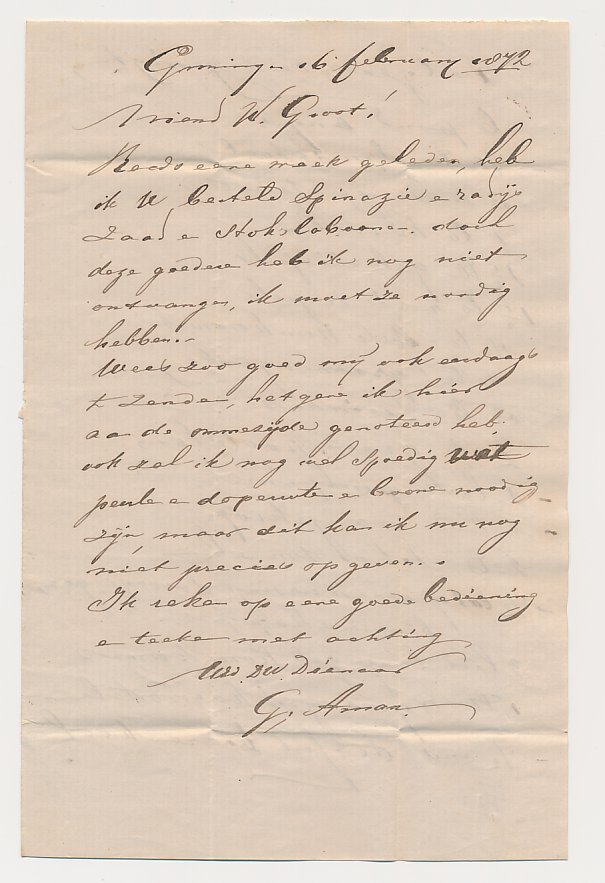 Groninge 16 februarij 1872
Vriend W. Groot!
Reeds eene week geleden, heb
ik U besteld Spinazie e radijs
Zaad e Stokslaboone. doch
deze goedere heb ik nog niet
ontvange, ik moet ze noodig
hebben.-
Wees zoo goed mij ook eerdaags
te zende, hetgene ik hier
aa de ommezijde genoteerd heb,
ook zal ik nog wel Spoedig wat
peule e doperwte e boone noodig
zijn, maar dit kan ik nu nog
niet precies op geven..
Ik reke op eene goede bediening
e teeke met achting
UEd. DW. Dienaar
G. Aman.